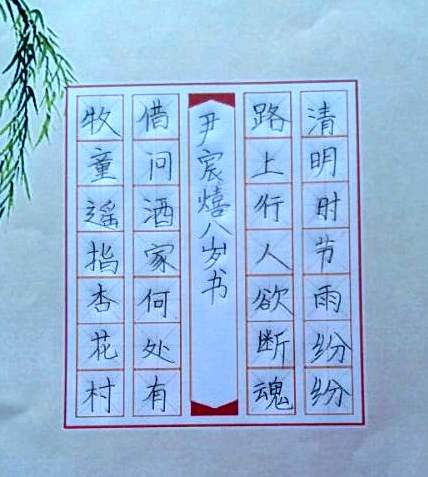 清明时节雨纷纷
路上行人欲断魂
尹宸熺八岁书
借问酒家何处有
牧童遥指杏花村